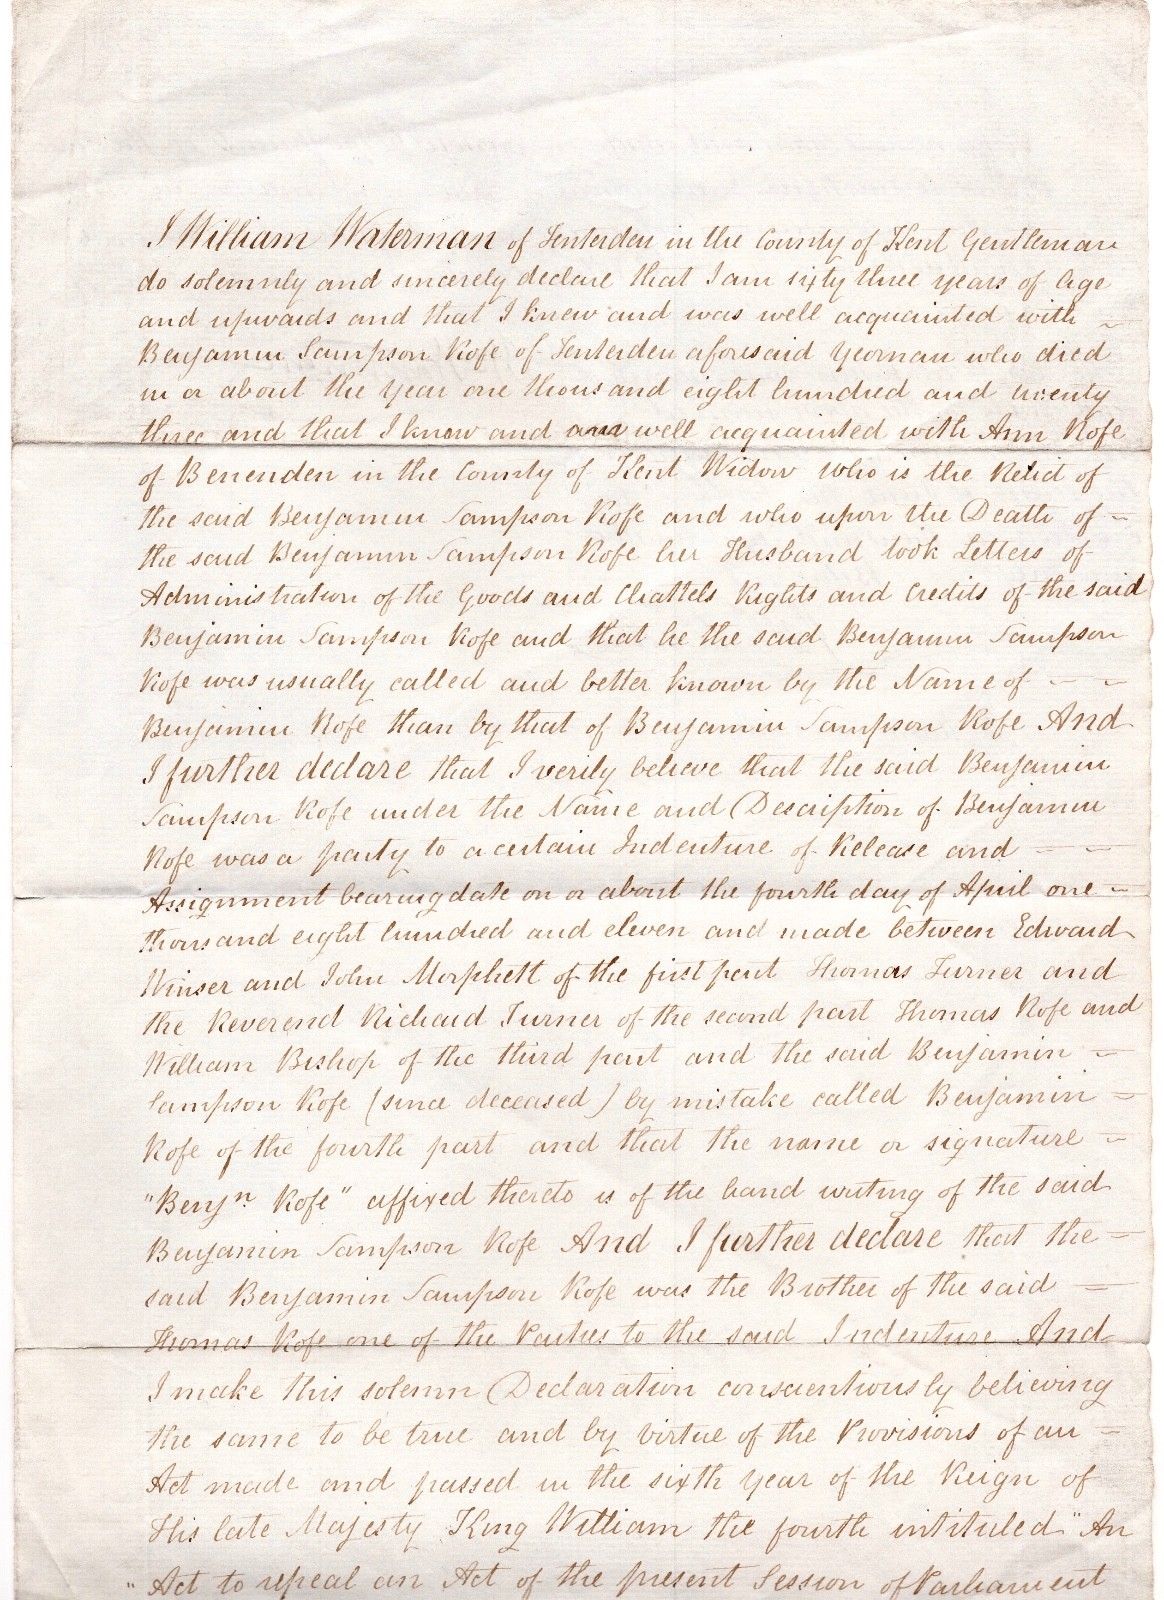 I William Waterman of Tenterden in the County of Kent Gentleman
do solemnly and sincerely declare that I am sixty three years of age
and upwards and that I knew and was well acquainted with
Benjamin Sampson Rofe of Tenterden aforesaid Yeoman who died
in or about the Year one thousand eight hundred and twenty
three and that I know and am well acquainted with Ann Rofe
of Benenden in the County of Kent Widow who is the Relict of
the said Benjamin Sampson Rofe and who upon the Death of
the said Benjamin Sampson Rofe her Husband took Letters of
Administration of the Goods and Chattels Rights and Credits of the said
Benjamin Sampson Rofe and that he the said Benjamin Sampson
Rofe was usually called and better known by the Name of
Benjamin Rofe than by that of Benjamin Sampson Rofe And
I further declare that I verily believe that the said Benjamin
Sampson Rofe under the Name and Description of Benjamin
Rofe was a party to a certain Indenture of Release and
Assignment bearing date on or about the fourth day of April one
thousand eight hundred and eleven and made between Edward
Winser and John Morphett of the first part Thomas Turner and
the Reverend Richard Turner of the second part Thomas Rofe and
William Bishop of the third part and the said Benjamin
Sampson Rofe (since deceased) by mistake called Benjamin
Rofe of the fourth part and that the name or signature
"Benjn. Rofe" affixed thereto is of the hand writing of the said
Benjamin Sampson Rofe And I further declare that the
said Benjamin Sampson Rofe was the Brother of the said
Thomas Rofe one of the Parties to the said Indenture And
I make this solemn Declaration conscientiously believing
the same to be true and by virtue of the Provisions of an
Act made and passed in the sixth year of the Reign of
His late Majesty King William the fourth intituled "An
" Act to repeal an Act of the present Session of Parliament